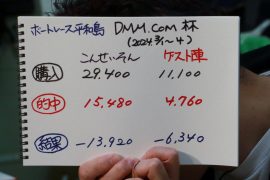 ボートレース平和島 DMM.com杯
(2024.3/1~4)
こんせいそん ゲスト陣
購入 29,400 11,100
的中 15,480 4,760
結果 -13,920 -6,340